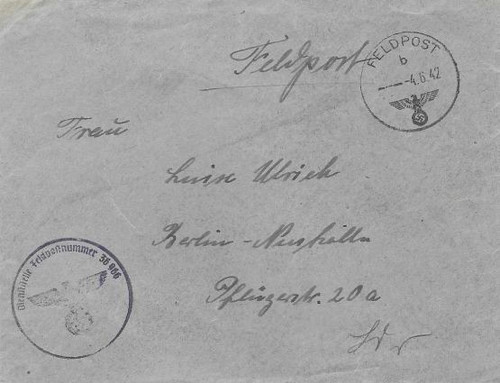 Feldpost
FELDPOST
b
-4.6.42
Frau
Luise Ulrich
Berlin-Neukölln
Pflügerstr. 20a
Dienststelle Feldpostnummer 36966